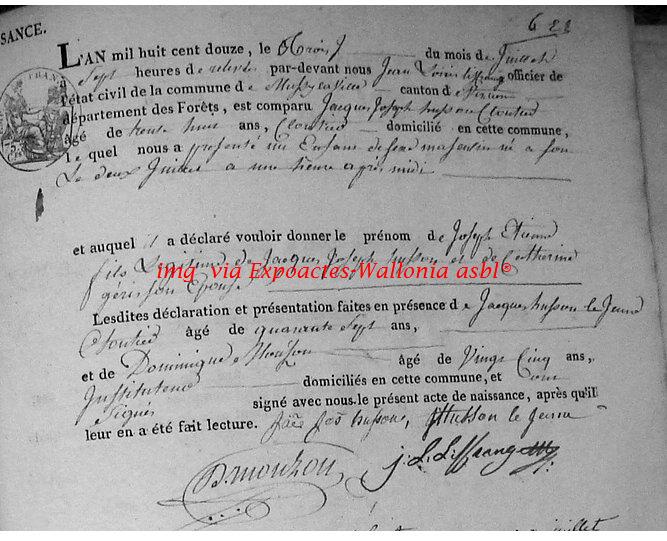 SANCE.
622
L'AN mil huit cent douze, le trois du mois de Juillet
à sept heures de relevée par-devant nous Jean Louis officier de
l'état civil de la commune de canton de
département des Forêts, est comparu Jacques Joseph husson Cloutier
âgé de trente huit ans, Cloutier domicilié en cette commune,
le quel nous a présenté un Enfant de sexe masculin né à
Le deux Juillet a une heure après midi
et auquel il a déclaré vouloir donner le prénom de Joseph Etienne
fils Légitime de Jacques Joseph husson et de Catherine
Epouse
img via Expoactes-Wallonia asbl®
Lesdites déclaration et présentation faites en présence de Jacques husson le Jeune
Cloutier âgé de quarante sept ans,
et de Dominique Mouzon âgé de Vingt Cinq ans,
Instituteur domiciliés en cette commune, et ont
signés signé avec nous le présent acte de naissance, après qu'il
leur en a été fait lecture. Jacq Jos husson, JHusson le jeune
Dmouzon J. L. Liffrang
juillet